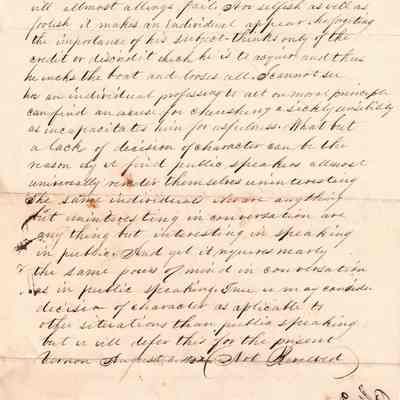 will allmost allways fail. How selfish as well as
foolish it makes an individual appear. He forgeting
the importance of his subject thinks only of the
credit or discredit which he is to acquire and thus
he rocks the boat and looses all. I cannot see
how an individual professing to act on moral principle
can find an excuse for cherishing a sickly sensibility
as incapacitates him for usefulness. What but
a lack of decision of character can be the
reason why I find public speakers allmost
universally render themselves uninteresting
The same individuals who are any thing
but uninteresting in conversation are
any thing but interesting in speaking
in public. And yet it requires nearly
the same power of mind in conversation
as in public speaking. True we may consider
decision of character as aplicable to
other situations than public speaking
but we will defer this for the present
Vernon August (Not Received)